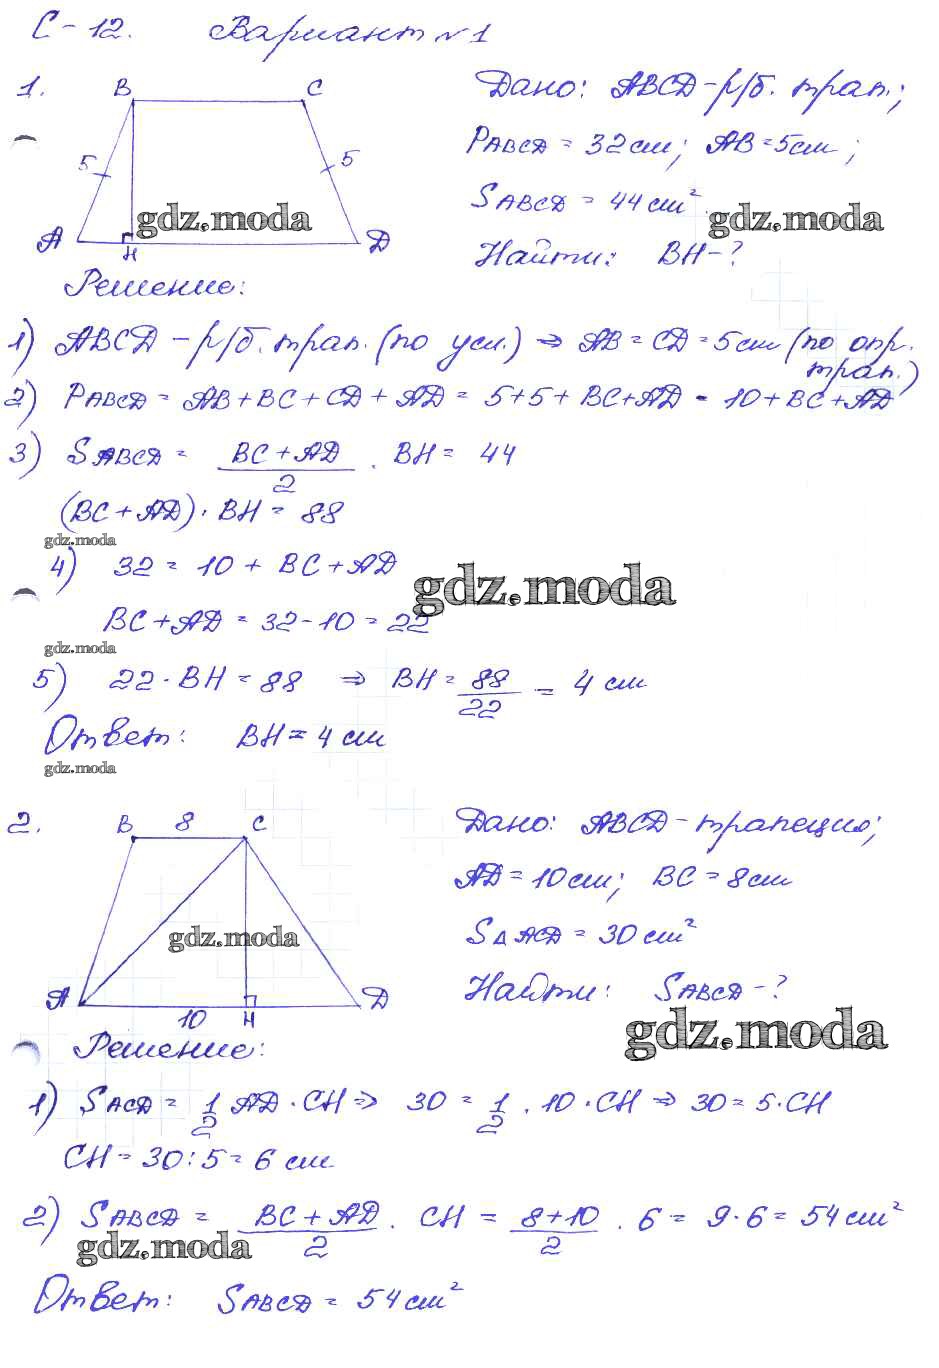 С-12. Вариант №1
1. B C
5 5
A H D
Дано: ABCD-р/б. трап.;
PABCD = 32 см; AB=5см;
SABCD = 44 см²
Найти: BH-?
gdz.moda gdz.moda
Решение:
1) ABCD-р/б. трап. (по усл.) ⇒ AB = CD = 5см (по опр. трап.)
2) PABCD = AB+BC+CD+AD = 5+5+BC+AD = 10+BC+AD
3) SABCD = BC+AD/2 · BH = 44
(BC+AD)·BH = 88
gdz.moda
4) 32 = 10 + BC+AD
gdz.moda
BC+AD = 32-10 = 22
gdz.moda
5) 22·BH = 88 ⇒ BH = 88/22 = 4 см
Ответ: BH = 4 см
gdz.moda
2. B 8 C
A 10 H D
gdz.moda
Дано: ABCD-трапеция;
AD = 10см; BC = 8см
S△ACD = 30 см²
Найти: SABCD-?
gdz.moda
Решение:
1) SACD = 1/2 AD·CH ⇒ 30 = 1/2 · 10·CH ⇒ 30 = 5·CH
CH = 30:5 = 6 см
2) SABCD = BC+AD/2 · CH = 8+10/2 · 6 = 9·6 = 54 см²
gdz.moda
Ответ: SABCD = 54 см²